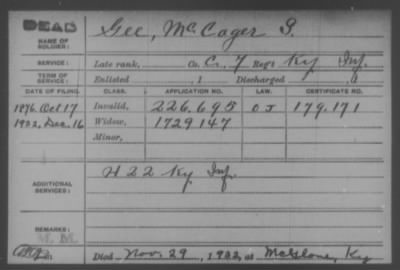 DEAD
Gee, McCager S.
NAME OF SOLDIER:
SERVICE: Late rank, Co. C, 7 Reg't Ky Inf.
TERM OF SERVICE: Enlisted , 1 Discharged , 1
DATE OF FILING. CLASS. APPLICATION NO. LAW. CERTIFICATE NO.
1876. Oct 17 Invalid, 226.695 O J 179.171
1932, Dec. 16 Widow, 1729147
Minor,
ADDITIONAL SERVICES: H 22 Ky Inf.
REMARKS:
M. M.
Died Nov. 29, 1932, at McGlone, Ky